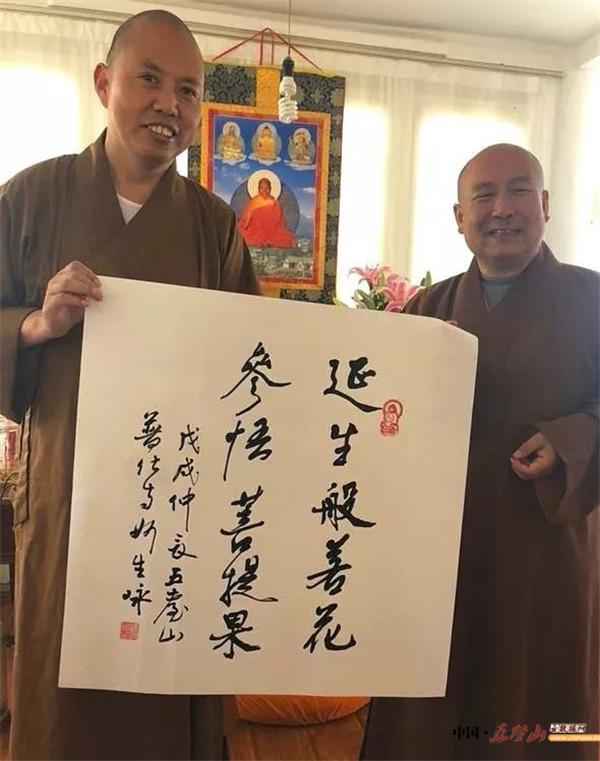 延生般若花
參悟菩提果
戊戌仲夏五臺山
普化寺妙生咏
中国·五台山